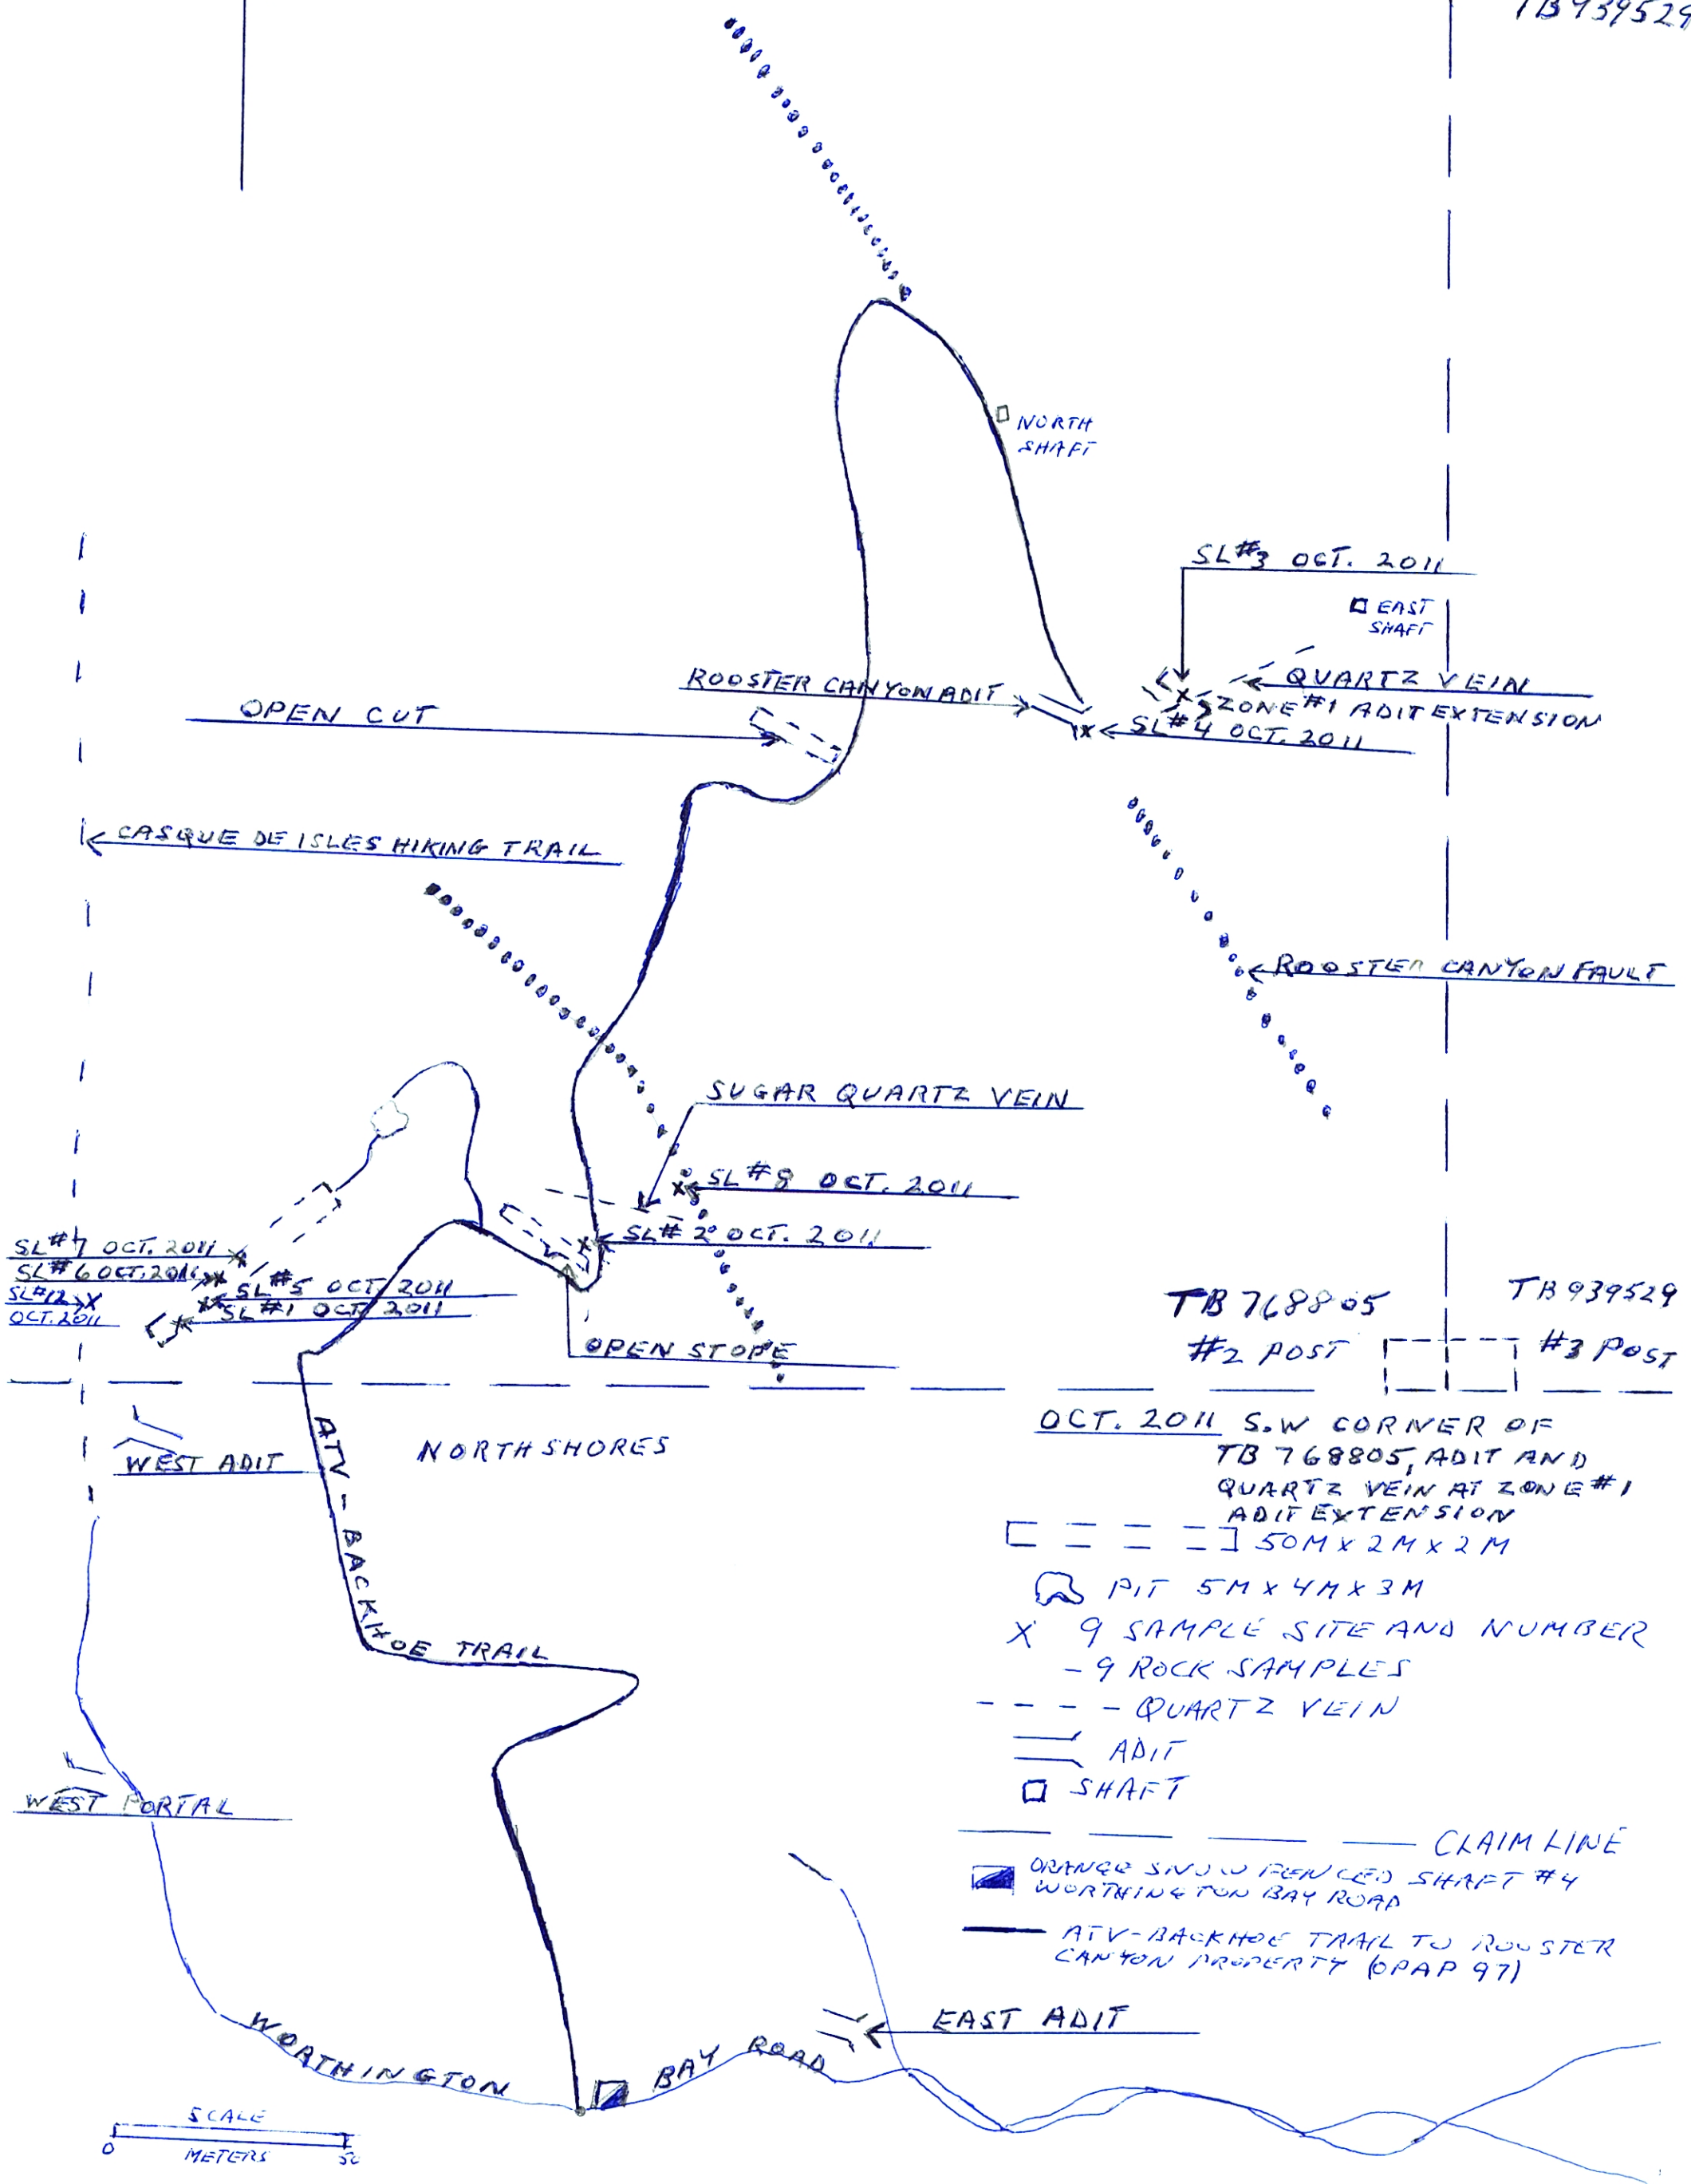 TB939529
NORTH
SHAFT
SL#3 OCT. 2011
EAST
SHAFT
ROOSTER CANYON ADIT
QUARTZ VEIN
ZONE #1 ADIT EXTENSION
OPEN CUT
SL#4 OCT. 2011
CASQUE DE ISLES HIKING TRAIL
ROOSTER CANYON FAULT
SUGAR QUARTZ VEIN
SL#8 OCT. 2011
SL#2 OCT. 2011
SL#7 OCT. 2011
SL#6 OCT. 2011
SL#5 OCT 2011
SL#12
OCT. 2011
SL#1 OCT 2011
OPEN STOPE
TB 768805
#2 POST
TB939529
#3 POST
WEST ADIT
NORTH SHORES
OCT. 2011 S.W CORNER OF
TB 768805, ADIT AND
QUARTZ VEIN AT ZONE #1
ADIT EXTENSION
50M X 2M X 2M
PIT 5M X 4M X 3M
X 9 SAMPLE SITE AND NUMBER
- 9 ROCK SAMPLES
QUARTZ VEIN
ADIT
SHAFT
CLAIM LINE
ORANGE SNOW FENCED SHAFT #4
WORTHINGTON BAY ROAD
ATV-BACKHOE TRAIL TO ROOSTER
CANYON PROPERTY (OPAP 97)
ATV - BACKHOE TRAIL
WEST PORTAL
EAST ADIT
WORTHINGTON BAY ROAD
SCALE
0 50
METERS